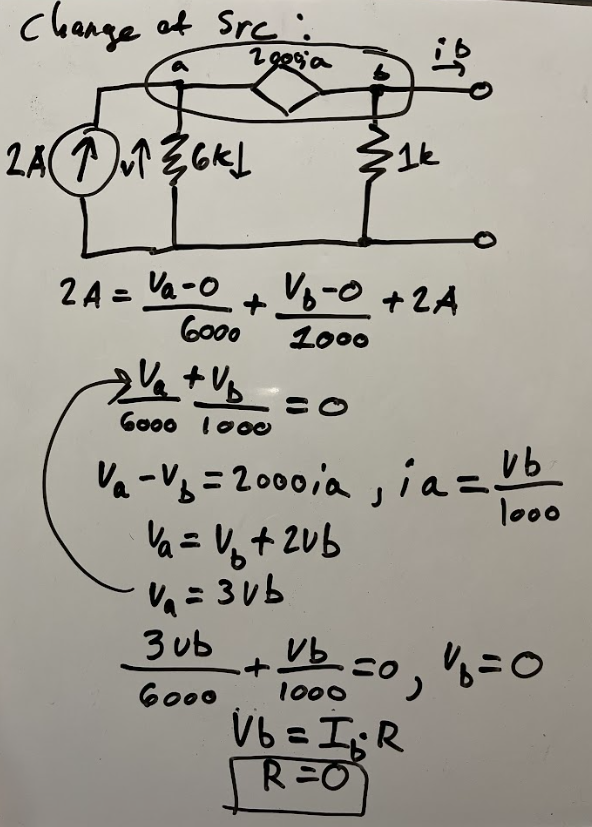 Change of Src:
a 2000ia b ib
2A v↑ 6k↓ 1k
2A = Va-0/6000 + Vb-0/1000 + 2A
Va/6000 + Vb/1000 = 0
Va - Vb = 2000ia , ia = Vb/1000
Va = Vb + 2Vb
Va = 3Vb
3Vb/6000 + Vb/1000 = 0 , Vb = 0
Vb = Ib · R
R = 0